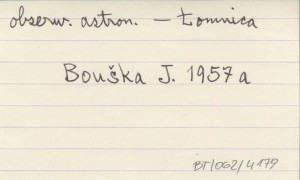 obserw. astron. — Łomnica
Bouška J. 1957a
BT/062/4179